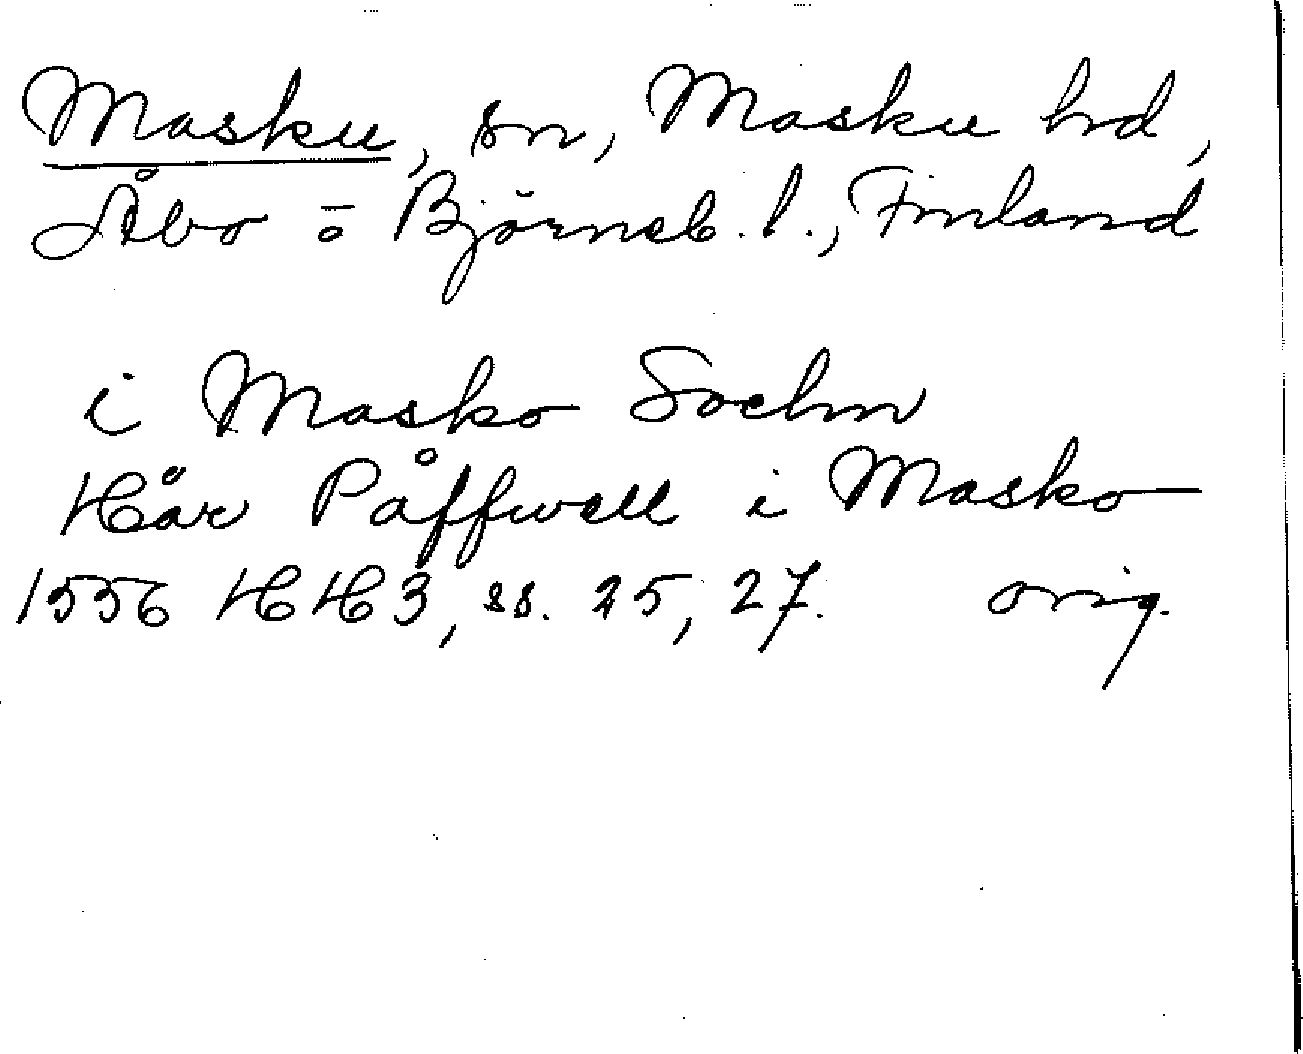 Masku, sn, Masku hd,
Åbo o Björneb. l., Finland
i Masko Sochn
Hår Påffwell i Masko
1556 HH3, ss. 25, 27. orig.